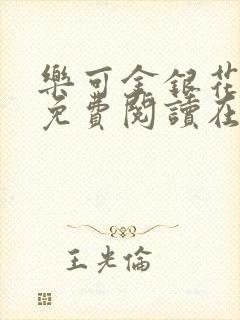 樂可金銀花
免費閱讀在
王光倫